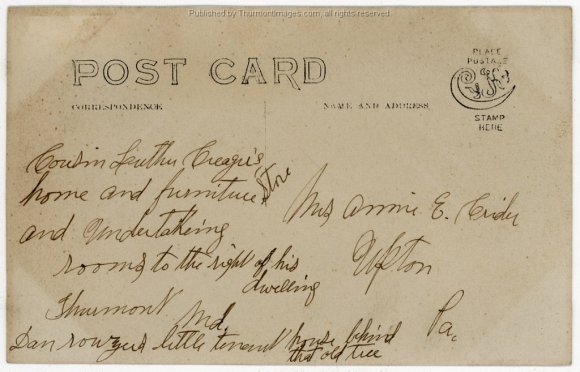 Published by Thurmontimages.com, all rights reserved.
POST CARD
CORRESPONDENCE
NAME AND ADDRESS
PLACE
POSTAGE
STAMP
HERE
Cousin Luther Creager's
home and furniture store
and Undertaking
rooms to the right of his
dwelling
Thurmont Md.
Dan rouzers little tenant house behind
that old tree
Mrs Annie E. Crider
Upton
Pa.